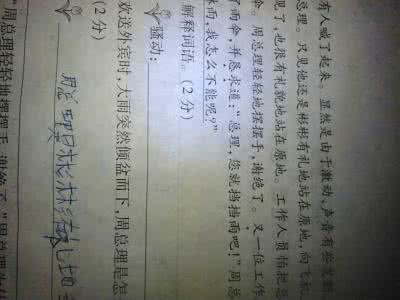 有人喊了起来。显然是由于激动,声音有些变
总理。只见他还是彬彬有礼地站在原地,向飞机
现了,也很有礼貌地站在原地。工作人员怕把总
伞。周总理轻轻地摆摆手,谢绝了。又一位工作
了雨伞,并恳求道:“总理,您就挡挡雨吧!”周总
淋雨,我怎么不能呢?”
解释词语。(2分)
骚动:
欢送外宾时,大雨突然倾盆而下,周总理是怎
(2分)
彬彬有礼地
“周总理轻轻地摆摆手,谢绝了。”周总